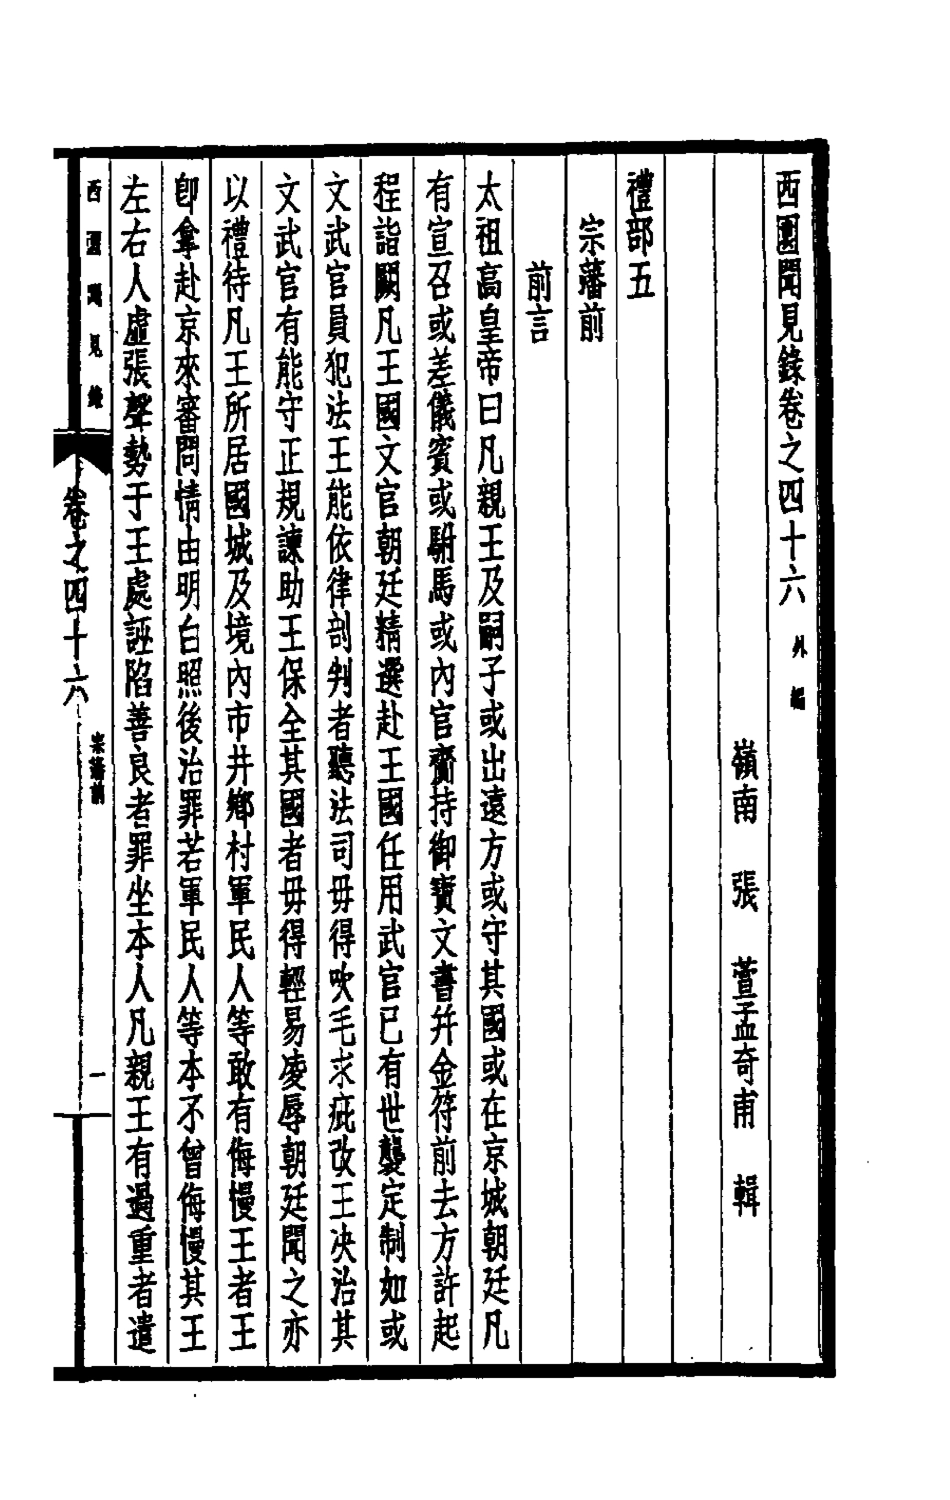 西園聞見錄卷之四十六 外編
嶺南 張 萱孟奇甫 輯
禮部五
宗藩前
前言
太祖高皇帝曰凡親王及嗣子或出遠方或守其國或在京城朝廷凡
有宣召或差儀賓或駙馬或內官齎持御寶文書并金符前去方許起
程詣闕凡王國文官朝廷精選赴王國任用武官已有世襲定制如或
文武官員犯法王能依律剖判者聽法司毋得吹毛求疵改王决治其
文武官有能守正規諫助王保全其國者毋得輕易凌辱朝廷聞之亦
以禮待凡王所居國城及境內市井鄉村軍民人等敢有侮慢王者王
卽拿赴京來審問情由明白照後治罪若軍民人等本不曾侮慢其王
左右人虛張聲勢于王處誣陷善良者罪坐本人凡親王有過重者遣
西園聞見錄
卷之四十六
宗藩前
一